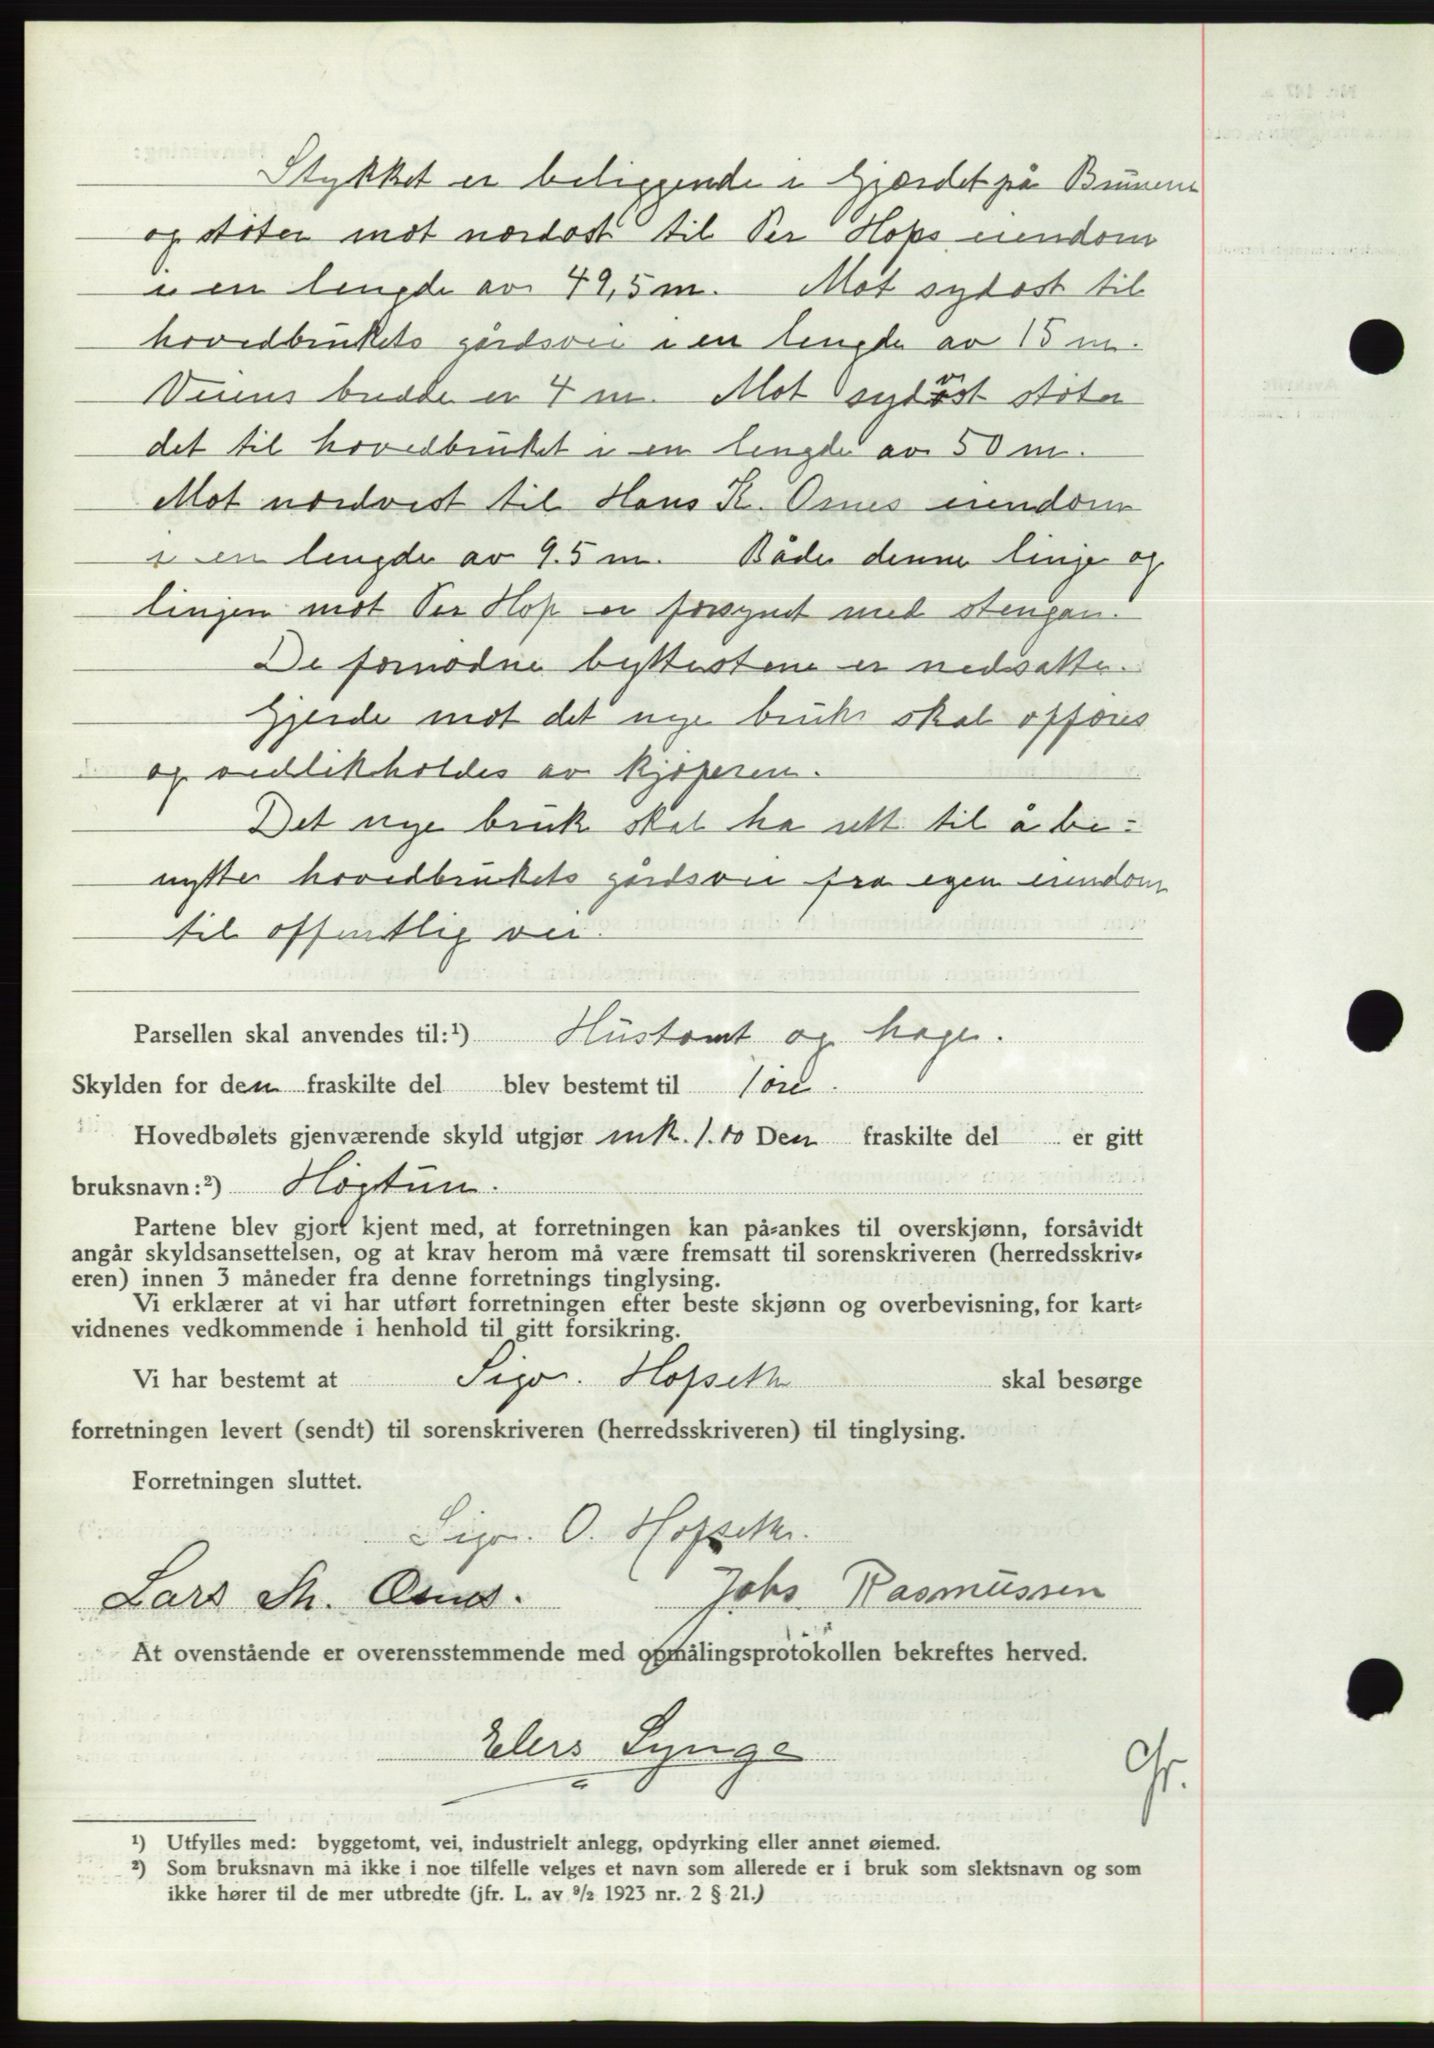 Stykket er beliggende i Gjærdet på Brunene
og støter mot nordøst til Per Hops eiendom
i en lengde av 49,5 m. Mot sydøst til
hovedbrukets gårdsvei i en lengde av 15 m.
Veiens bredde er 4 m. Mot sydvest støter
det til hovedbruket i en lengde av 50 m.
Mot nordvest til Hans K. Osnes eiendom
i en lengde av 9.5 m. Både denne linje og
linjen mot Per Hop er forsynet med stengan.
De fornødne byttestene er nedsatte.
Gjerde mot det nye bruk skal opføres
og vedlikholdes av kjøperen.
Det nye bruk skal ha rett til å be-
nytte hovedbrukets gårdsvei fra egen eiendom
til offentlig vei.
Parsellen skal anvendes til:¹) Hustomt og hage.
Skylden for den fraskilte del blev bestemt til 1 øre.
Hovedbølets gjenværende skyld utgjør mk. 1.10 Den fraskilte del er gitt
bruksnavn:²) Høgtun.
Partene blev gjort kjent med, at forretningen kan på-ankes til overskjønn, forsåvidt
angår skyldsansettelsen, og at krav herom må være fremsatt til sorenskriveren (herredsskriv-
eren) innen 3 måneder fra denne forretnings tinglysing.
Vi erklærer at vi har utført forretningen efter beste skjønn og overbevisning, for kart-
vidnenes vedkommende i henhold til gitt forsikring.
Vi har bestemt at Sigv. Hofseth skal besørge
forretningen levert (sendt) til sorenskriveren (herredsskriveren) til tinglysing.
Forretningen sluttet.
Sigv. O. Hofseth.
Lars Th. Osnes. Johs. Rasmussen
At ovenstående er overensstemmende med opmålingsprotokollen bekreftes herved.
Elers Synge
Gr.
¹) Utfylles med: byggetomt, vei, industrielt anlegg, opdyrking eller annet øiemed.
²) Som bruksnavn må ikke i noe tilfelle velges et navn som allerede er i bruk som slektsnavn og som
ikke hører til de mer utbredte (jfr. L. av ⁹/₂ 1923 nr. 2 § 21.)